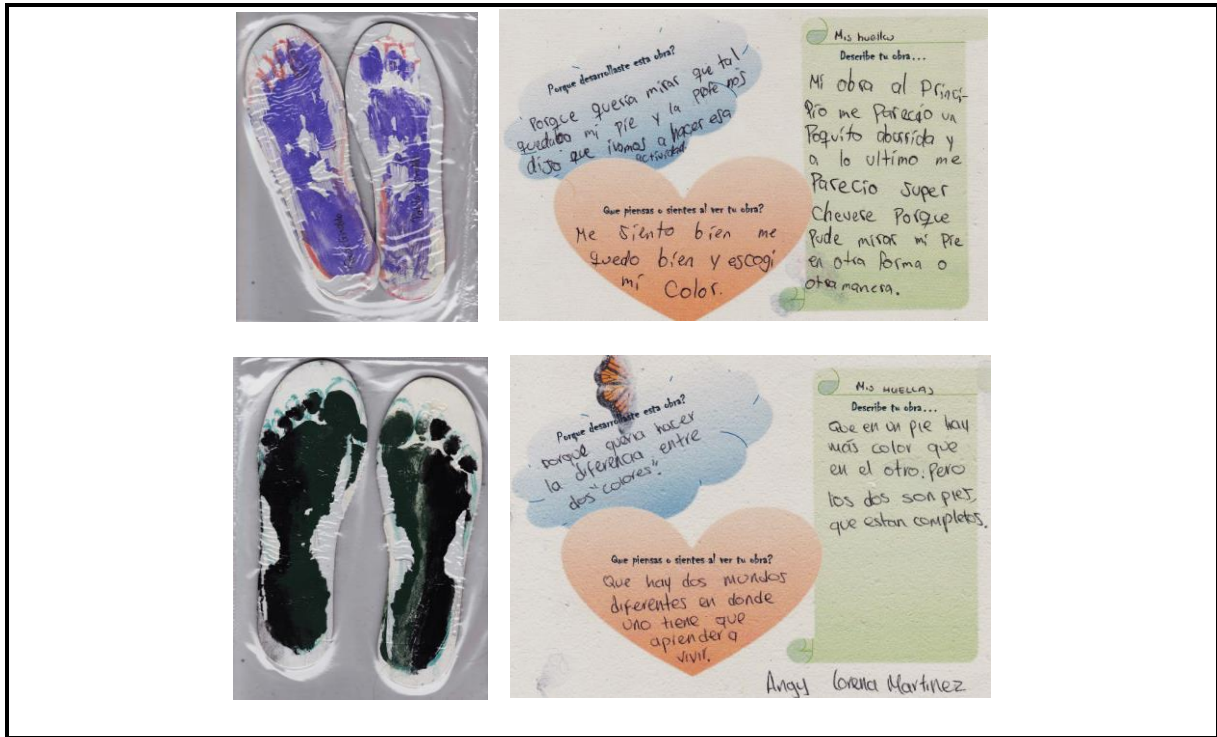 Porque desarrollaste esta obra?
Porque quería mirar que tal
quedaba mi pie y la profe nos
dijo que ivamos a hacer esa
actividad.
Que piensas o sientes al ver tu obra?
Me siento bien me
quedo bien y escogi
mi color.
Mis huellas
Describe tu obra...
Mi obra al Princi-
Pio me Parecio un
Poquito aburrida y
a lo ultimo me
Parecio super
chevere Porque
Pude mirar mi Pie
en otra forma o
otra manera.
Porque desarrollaste esta obra?
porque quería hacer
la diferencia entre
dos "colores".
Que piensas o sientes al ver tu obra?
Que hay dos mundos
diferentes en donde
uno tiene que
aprender a
vivir.
Mis HUELLAS
Describe tu obra...
Que en un pie hay
más color que
en el otro. Pero
los dos son pies
que estan completos.
Angy Lorena Martinez